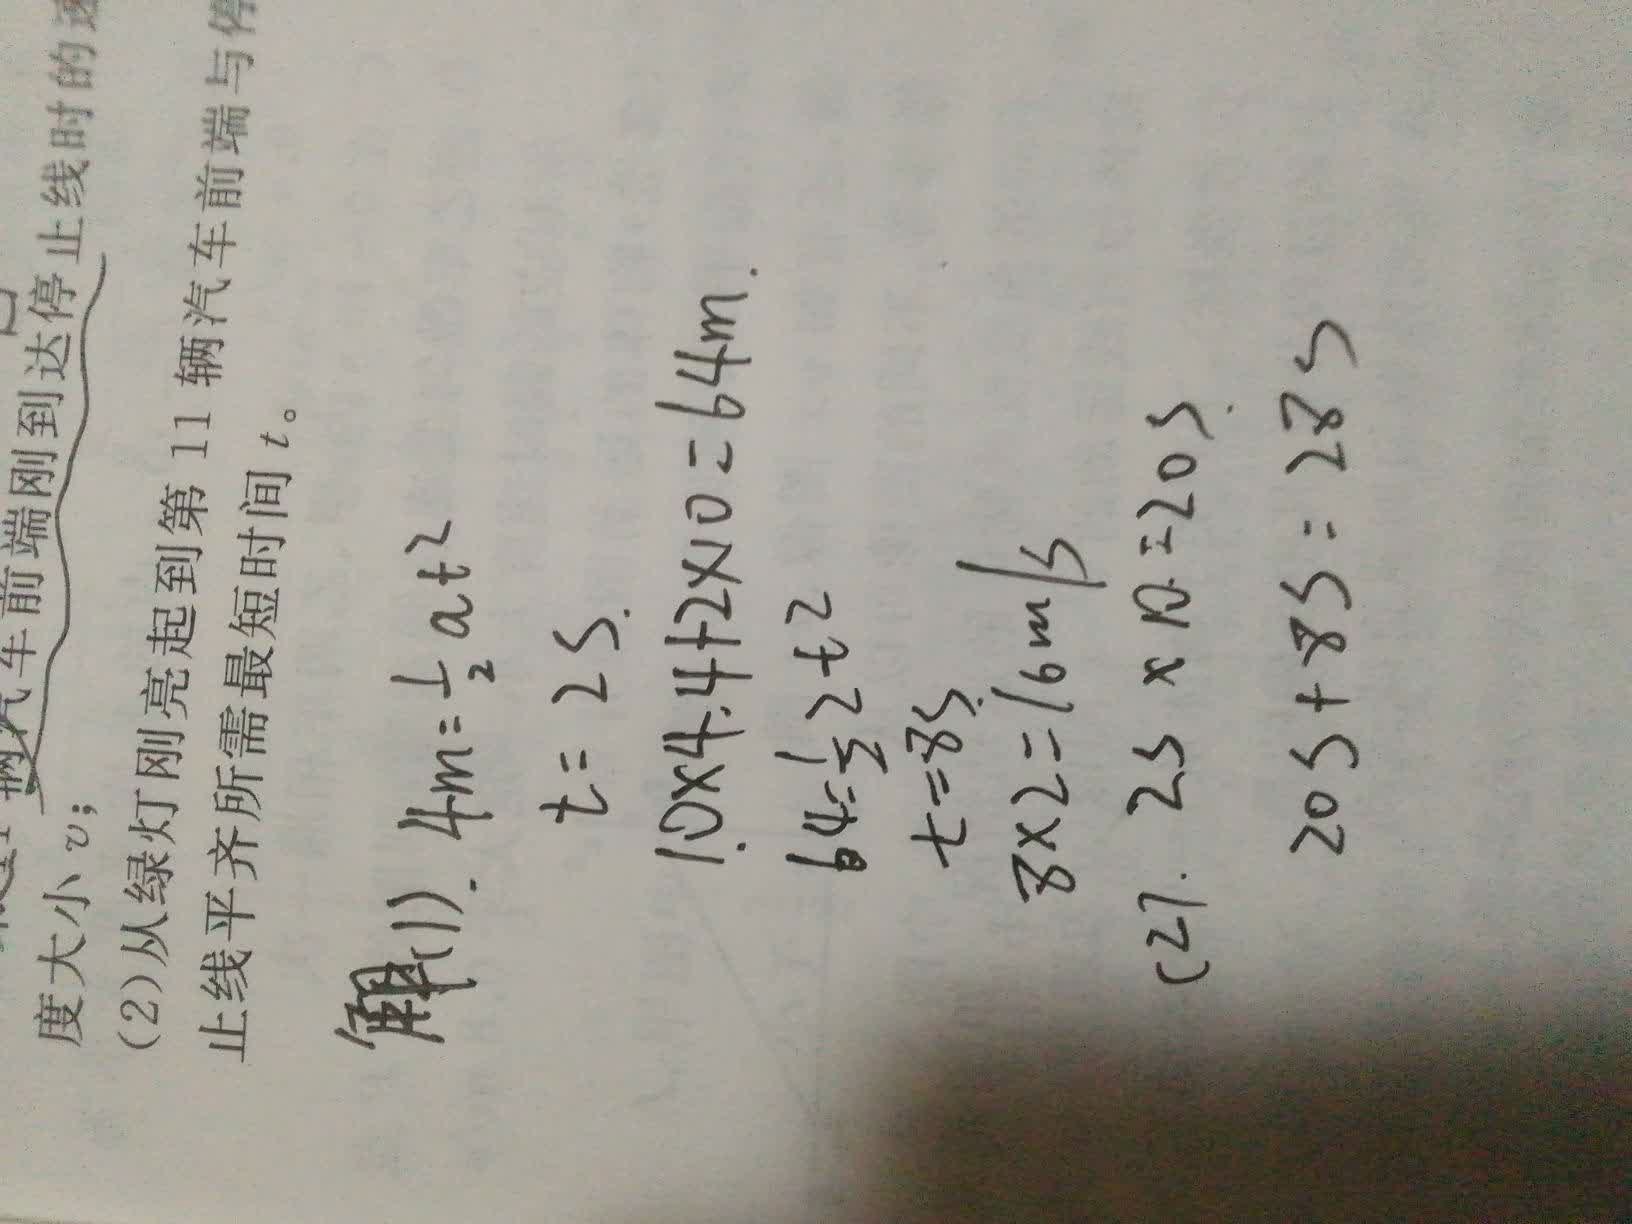 辆汽车前端刚到达停止线时的速
度大小 v;
(2)从绿灯刚亮起到第 11 辆汽车前端与停
止线平齐所需最短时间 t。
解(1). 4m=½at²
t=2s.
10×4.4+2×10=64m.
64=½2t²
t=8s.
8×2=16m/s
(2). 2s×10=20s.
20s+8s=28s